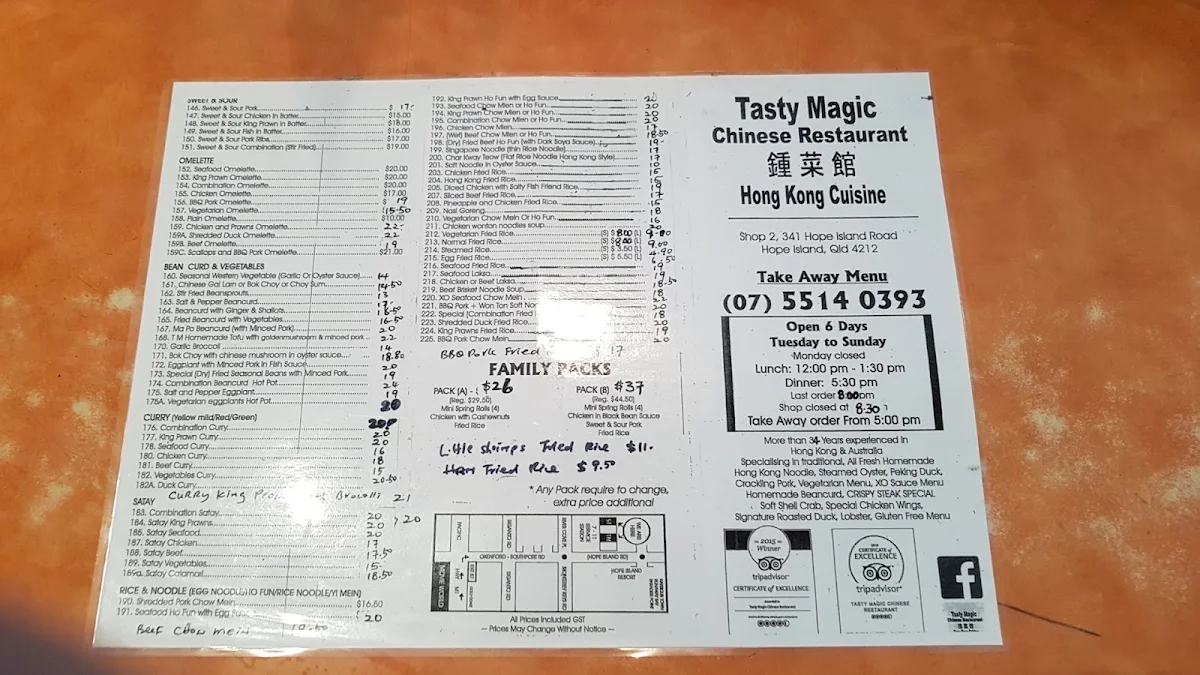 SWEET & SOUR
146. Sweet & Sour Pork $ 17-
147. Sweet & Sour Chicken in Batter $15.00
148. Sweet & Sour King Prawn in Batter $18.00
149. Sweet & Sour Fish in Batter $16.00
150. Sweet & Sour Pork Ribs $17.00
151. Sweet & Sour Combination (Stir Fried) $19.00
OMELETTE
152. Seafood Omelette $20.00
153. King Prawn Omelette $20.00
154. Combination Omelette $20.00
155. Chicken Omelette $17.00
156. BBQ Pork Omelette $ 19
157. Vegetarian Omelette $15-50
158. Plain Omelette $10.00
159. Chicken and Prawns Omelette 22-
159A. Shredded Duck Omelette 22
159B. Beef Omelette 19
159C. Scallops and BBQ Pork Omelette $21.00
BEAN CURD & VEGETABLES
160. Seasonal Western Vegetable (Garlic Or Oyster Sauce) 14
161. Chinese Gai Lam or Bok Choy or Choy Sum 14-50
162. Stir Fried Beansprouts 13
163. Salt & Pepper Beancurd 17-
164. Beancurd with Ginger & Shallots 18-50
165. Fried Beancurd with Vegetables 16-50
167. Ma Po Beancurd (with Minced Pork) 20
168. T M Homemade Tofu with goldenmushroom & minced pork 22
170. Garlic Broccoli 14
171. Bok Choy with chinese mushroom in oyster sauce 18.80
172. Eggplant with Minced Pork in Fish Sauce 20
173. Special (Dry) Fried Seasonal Beans with Minced Pork 19
174. Combination Beancurd Hot Pot 24
175. Salt and Pepper Eggplant 19
175A. Vegetarian eggplants Hot Pot 20
CURRY (Yellow mild/Red/Green)
176. Combination Curry
177. King Prawn Curry 20
178. Seafood Curry 20
180. Chicken Curry 16
181. Beef Curry 18
182. Vegetables Curry 15
182A. Duck Curry 20-50
Curry King Broccoli 21
SATAY
183. Combination Satay 20
184. Satay King Prawns 20 } 20
185. Satay Seafood 20
187. Satay Chicken 17
188. Satay Beef 17.50
189. Satay Vegetables 15-
189a. Satay Calamari 18.50
RICE & NOODLE (EGG NOODLE/HO FUN/RICE NOODLE/YI MEIN)
190. Shredded Pork Chow Mein $16.50
191. Seafood Ho Fun with Egg 20
Beef Chow Mein
192. King Prawn Ho Fun with Egg Sauce 20
193. Seafood Chow Mien or Ho Fun 20
194. King Prawn Chow Mien or Ho Fun 20
195. Combination Chow Mien or Ho Fun 20
196. Chicken Chow Mien 17
197. (Wet) Beef Chow Mien or Ho Fun 18.50
198. (Dry) Fried Beef Ho Fun (with Dark Soya Sauce) 19-
199. Singapore Noodle (thin Rice Noodle) 17
200. Char Kway Teow (Flat Rice Noodle Hong Kong Style) 17
201. Soft Noodle in Oyster Sauce 10
203. Chicken Fried Rice 15
204. Hong Kong Fried Rice 15
205. Diced Chicken with Salty Fish Friend Rice 19
207. Sliced Beef Fried Rice 17
208. Pineapple and Chicken Fried Rice 15
209. Nasi Goreng 18
210. Vegetarian Chow Mein Or Ho Fun 16
211. Chicken wonton noodles soup 20
212. Vegetarian Fried Rice (S) $ 8.00 (L) 9-80
213. Normal Fried Rice (S) $ 8.00 (L) 9.00
214. Steamed Rice (S) $ 3.50 (L) 4.90
215. Egg Fried Rice (S) $ 5.50 (L) 6.50
216. Seafood Fried Rice 19
217. Seafood Laksa 19
218. Chicken or Beef Laksa 18-50
219. Beef Brisket Noodle Soup 18
220. XO Seafood Chow Mein 22
221. BBQ Pork + Won Ton Soft Noodle 20
222. Special (Combination Fried 18
223. Shredded Duck Fried Rice 20
224. King Prawns Fried Rice 19
225. BBQ Pork Chow Mein 20
BBQ Pork Fried 17
FAMILY PACKS
PACK (A) - $26 PACK (B) $37
(Reg. $29.50) (Reg. $44.50)
Mini Spring Rolls (4) Mini Spring Rolls (4)
Chicken with Cashewnuts Chicken in Black Bean Sauce
Fried Rice Sweet & Sour Pork
Fried Rice
Little shrimps Fried Rice $11-
Ham Fried Rice $9.50
* Any Pack require to change,
extra price additional
PACIFIC
MOVIE WORLD
OXENFORD - SOUTHPORT RD
(HOPE ISLAND RD)
HOPE ISLAND
RESORT
WE ARE HERE
7-11
SERVICE STATION
All Prices Included GST
-- Prices May Change Without Notice --
Tasty Magic
Chinese Restaurant
鍾菜館
Hong Kong Cuisine
Shop 2, 341 Hope Island Road
Hope Island, Qld 4212
Take Away Menu
(07) 5514 0393
Open 6 Days
Tuesday to Sunday
Monday closed
Lunch: 12:00 pm - 1:30 pm
Dinner: 5:30 pm
Last order 8:00pm
Shop closed at 8:30
Take Away order From 5:00 pm
More than 34 Years experienced in
Hong Kong & Australia
Specialising in traditional, All Fresh Homemade
Hong Kong Noodle, Steamed Oyster, Peking Duck,
Crackling Pork, Vegetarian Menu, XO Sauce Menu
Homemade Beancurd, CRISPY STEAK SPECIAL
Soft Shell Crab, Special Chicken Wings,
Signature Roasted Duck, Lobster, Gluten Free Menu
2015
Winner
tripadvisor
CERTIFICATE of EXCELLENCE
Tasty Magic Chinese Restaurant
CERTIFICATE of
EXCELLENCE
tripadvisor
TASTY MAGIC CHINESE
RESTAURANT
f
Tasty Magic
Chinese Restaurant